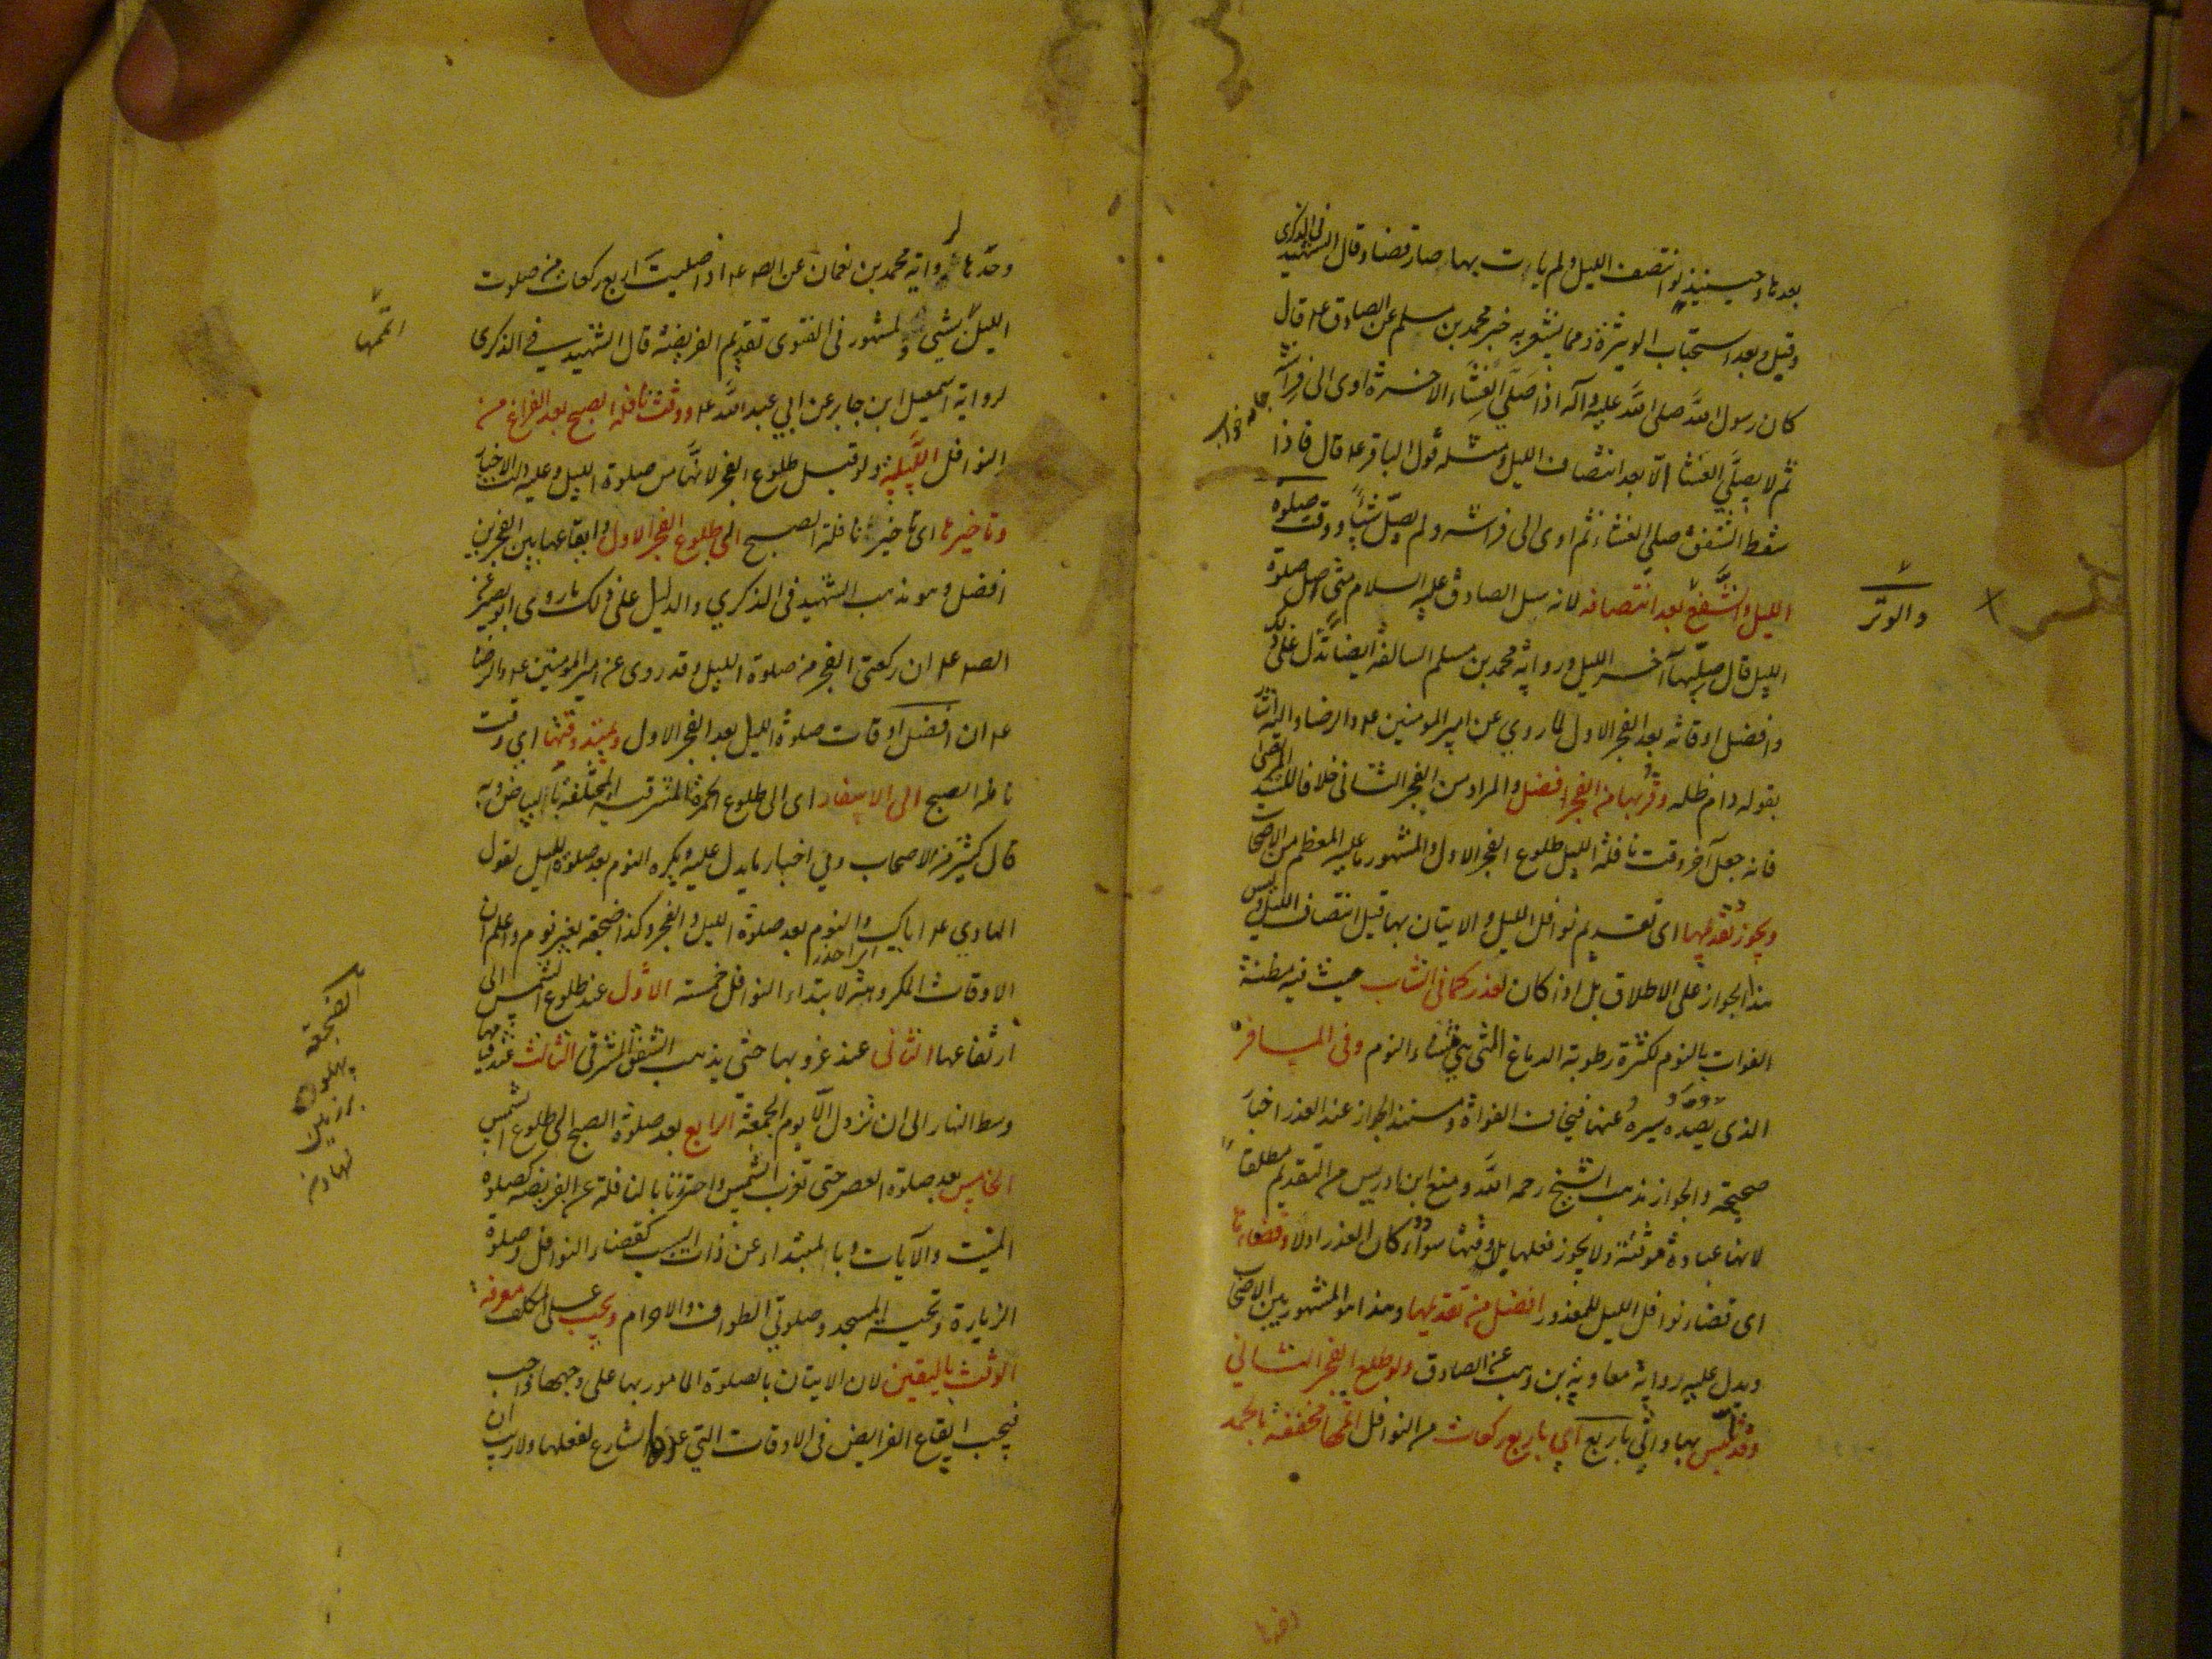 بعدها وحينئذ لو انتصف الليل ولم يأت بها صار قضاء وقال الشهيد في الذكرى
وقيل وبعد استحباب الوتيرة ومما يشعر به خبر محمد بن مسلم عن الصادق ع قال
كان رسول الله صلى الله عليه وآله اذا صلى العشاء الاخرة اوى الى فراشه
ثم لا يصلي العشا الا بعد انتصاف الليل ومثله قول الباقر ع قال فاذا
سقط الشفق صلي العشاء ثم اوى الى فراشه ولم يصل شيئا ووقت صلوة
الليل والشفع بعد انتصافه لانه سئل الصادق عليه السلام متى اصل صلوة
الليل قال صلها آخر الليل ورواية محمد بن مسلم السالفة ايضا تدل على ذلك
وافضل اوقاته بعد الفجر الاول لما روي عن امير المومنين ع والرضا واليه اشار
بقوله دام ظله وقربها من الفجر افضل والمراد من الفجر الثانى خلافا للسيد المرتضى
فانه جعل آخر وقت نافلة الليل طلوع الفجر الاول والمشهور ما عليه المعظم من الاصحاب
ويجوز تقديمها اى تقديم نوافل الليل والاتيان بها قبل انتصاف الليل وليس
هذا الجواز على الاطلاق بل اذا كان لعذر كما فى الشاب حيث فيه مظنة
الفوات بالنوم لكثرة رطوبة الدماغ التى هي منشاء النوم وفى المسافر
الذى يصده سيره عنها فيخاف الفواة ومستند الجواز عند العذر اخبار
صحيحة والجواز مذهب الشيخ رحمه الله ومنع ابن ادريس من التقديم مطلقا
لانها عبادة موقتة ولا يجوز فعلها بلا وقتها سواء كان العذر اولا وقضاءها
اى قضاء نوافل الليل للمعذور افضل من تقديمها وهذا هو المشهور بين الاصحاب
ويدل عليه رواية معاوية بن وهب عن الصادق ولو طلع الفجر الثاني
وقد تلبس بها واتى باربع اى باربع ركعات من النوافل اتمها مخففة بالحمد
والوتر
وحدها لرواية محمد بن نعمان عن الص ع اذا صليت اربع ركعات من صلوت
الليل شي والمشهور فى الفتوى تقديم الفريضة قال الشهيد في الذكرى
لرواية اسمعيل ابن جابر عن ابي عبد الله ع ووقت نافلة الصبح بعد الفراغ من
النوافل الليلية ولو قبل طلوع الفجر لانها من صلوة الليل وعليه دلت الاخبار
وتاخيرها اى تاخير نافلة الصبح الى طلوع الفجر الاول وايقاعها بين الفجرين
افضل وهو مذهب الشهيد فى الذكري والدليل على ذلك ما روى ابو بصير عن
الص ع ان ركعتى الفجر من صلوة الليل وقد روى عن امير المومنين ع والرضا
ع ان افضل اوقات صلوة الليل بعد الفجر الاول ويمتد وقتها اي وقت
نافلة الصبح الى الاسفار اى الى طلوع الحمرة المشرقية المختلفة بالبياض وبه
قال كثير من الاصحاب وفي اخبار ما يدل عليه ويكره النوم بعد صلوة الليل لقول
الهادي ع اياك والنوم بعد صلوة الليل والفجر وكذا ضجعة بغير نوم واعلم ان
الاوقات المكروهة لابتداء النوافل خمسة الاول عند طلوع الشمس الى
ارتفاعها الثانى عند غروبها حتى يذهب الشفق المشرقى الثالث عند قيامها
وسط النهار الى ان تزول الا يوم الجمعة الرابع بعد صلوة الصبح الى طلوع الشمس
الخامس بعد صلوة العصر حتى تغرب الشمس واحترزنا بالنافلة عن الفريضة كصلوة
الميت والآيات وبالمبتداء عن ذات السبب كقضاء النوافل وصلوة
الزيارة وتحية المسجد وصلوتي الطواف والاحرام ويجب على المكلف معرفة
الوقت باليقين لان الاتيان بالصلوة المامور بها على وجهها واجب
فيجب ايقاع الفرايض فى الاوقات التي الشارع لفعلها ولا ريب ان
اتمها
الضجعة
پهلو
بزمين
نهادن